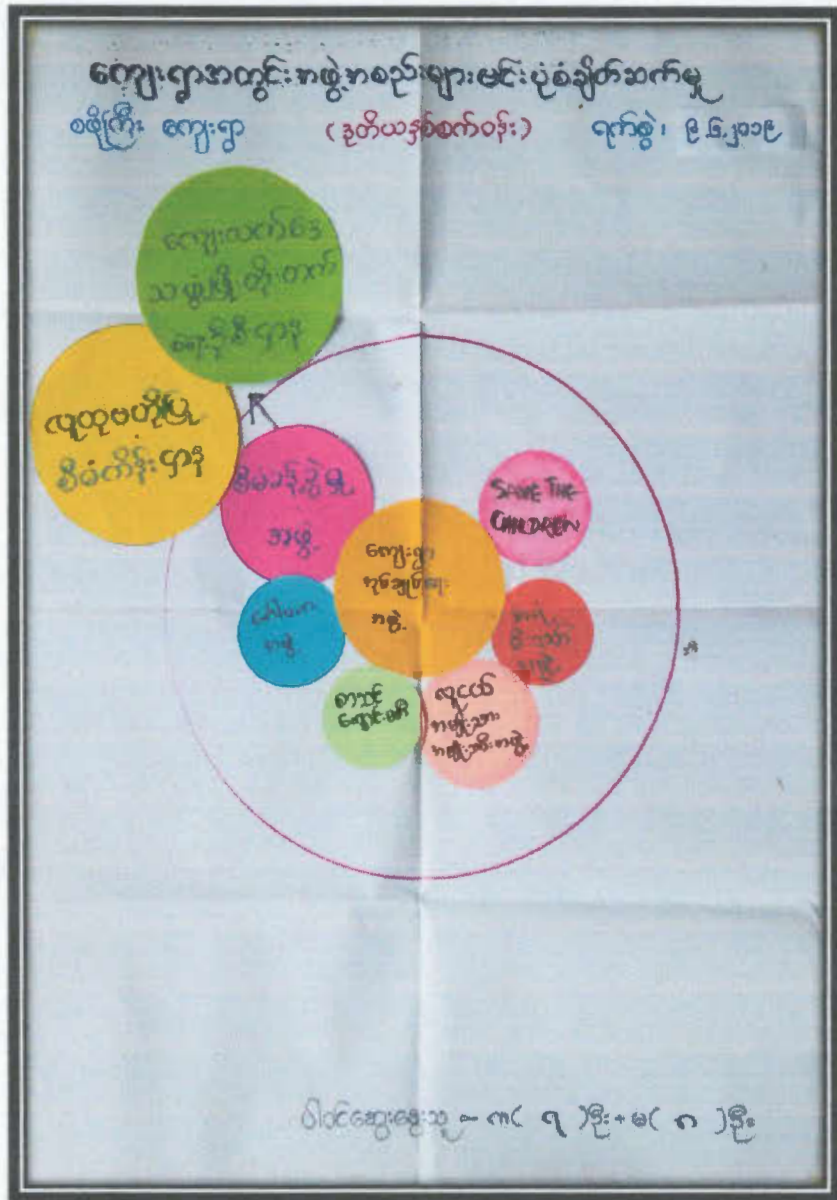 ကျေးရွာအတွင်းအဖွဲ့အစည်းများမင်းပုံစံချိတ်ဆက်မှု
စဖိုကြီး ကျေးရွာ (ဒုတိယနှစ်စက်ဝန်း) ရက်စွဲ၊ ၉.၆.၂၀၁၉
ကျေးလက်ဒေသ
ဖွံ့ဖြိုးတိုးတက်
ရေးဦးစီးဌာန
လူထုဗဟိုပြု
စီမံကိန်းဌာန
စီမံခန့်ခွဲမှု
အဖွဲ့
SAVE THE
CHILDREN
ကျေးရွာ
အုပ်ချုပ်ရေး
အဖွဲ့
အဖွဲ့
အဖွဲ့
လူငယ်
အမျိုးသား
အမျိုးသမီးအဖွဲ့
ပါဝင်ဆွေးနွေးသူ - ကျ( ၇ )ဦး + မ( ၈ )ဦး